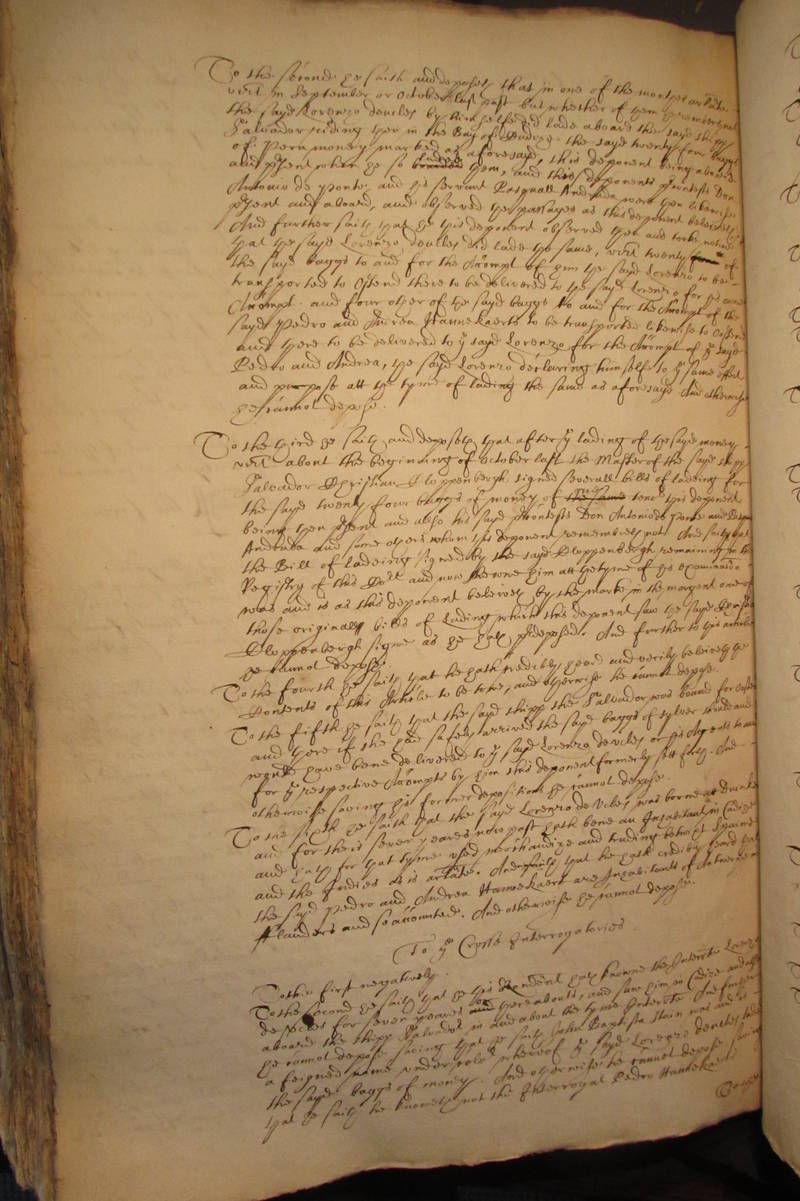 To the second he saith and deposeth that in one of the monthes arlate
vizt in September or October last past but whether of them he remembreth not
the sayd Lorenzo deviles by himselfe did lade aboard the sayd shipp
Salvador riding then in the Bay of the sayd twenty four baggs
of Peru money marked as aforesayd, this deponent being aboard
and present when he so laded them, and this deponents Don
Antonio de Ponte and his servant Pasquall Andrada were then likewise
present and aboard, and observed the passages as this deponent beleeveth
And further saith that hee this deponent observed then and tooke notice
that the sayd Lorenzo deviles did lade the same, vizt twenty of
the sayd baggs to and for the Accompt of him the sayd Lorenzo to be
transported to Ostend there to be delivered to the sayd Lorenzo for his owne
Accompt. and four other of the sayd baggs to and for the Accompt of the
sayd Pedro and Andrea Hannekaerts to be transported likewise to Ostend
and there to be delivered to ye sayd Lorenzo for the Accompt of ye sayd
Pedro and Andrea, the sayd Lorenzo declaring himself to ye same effect
and purpose att the tyme of lading the same as aforesayd And otherwise
he cannot depose.
To the third he saith and deposeth that after ye lading of the sayd money
vizt about the beginning of October last the Master of the sayd shipp
Salvador Christian Cloppenbergh signed severall bills of lading for
the sayd twenty four baggs of money of the same tenor this deponent
being then present and also his sayd Don Antonio de Ponte and
Andrada and some others whom this deponent remembreth not And saith that
the Bill of ladeing signed by the sayd Cloppenbergh remaining in the
Registry of this Court and now shewne him att the tyme of his examination
was and is as this deponent beleeveth by the marke in the margent one of
those originall bills of Lading which this deponent saw the sayd
Cloppenbergh signe as he hath predeposed. And further to this article
he cannot depose.
To the fourth he saith that he hath credibly heard and verily beleiveth the
Contents of this Article to be true, and otherwise he cannot depose.
To the fifth he saith that the sayd shipp the Salvador was bound for Ostend
and there if she had safely arrived the sayd baggs of sylver should and
would have bene delivered to ye sayd Lorenzo deviles or his Agents to and
for ye respective Accompts by him this deponent formerly sett forth. And
otherwise saving his former deposition he cannot depose.
To the sixth he saith that the sayd Lorenzo de Viles was borne att
and for theis seven yeares now past hath bene an Inhabitant in Cadiz
and hath for that tyme used merchandize and trading betwixt Spaine
and the Indies as is arlate. And saith that he hath credibly heard that
the sayd Pedro and Andrea Hannekaert are Inhabitants of Antwerpe in
Flanders and so accounted. And otherwise he cannot depose.
To ye Crosse Interrogatories.
To the first negatively.
To the second he saith that he this deponent hath knowne the Interrate Lorenzo
deviles for seven yeares or thereabouts, and saw him in Cadiz and
aboard the shipp Salvador in and about the tyme Interrate And further
he cannot depose saving that he saith John Baptista Stain was
a feigned name under colour whereof ye sayd Lorenzo deviles
the sayd baggs of money. And otherwise he cannot depose saving
that he saith he knoweth not the Interrogate Pedro Hannekaert